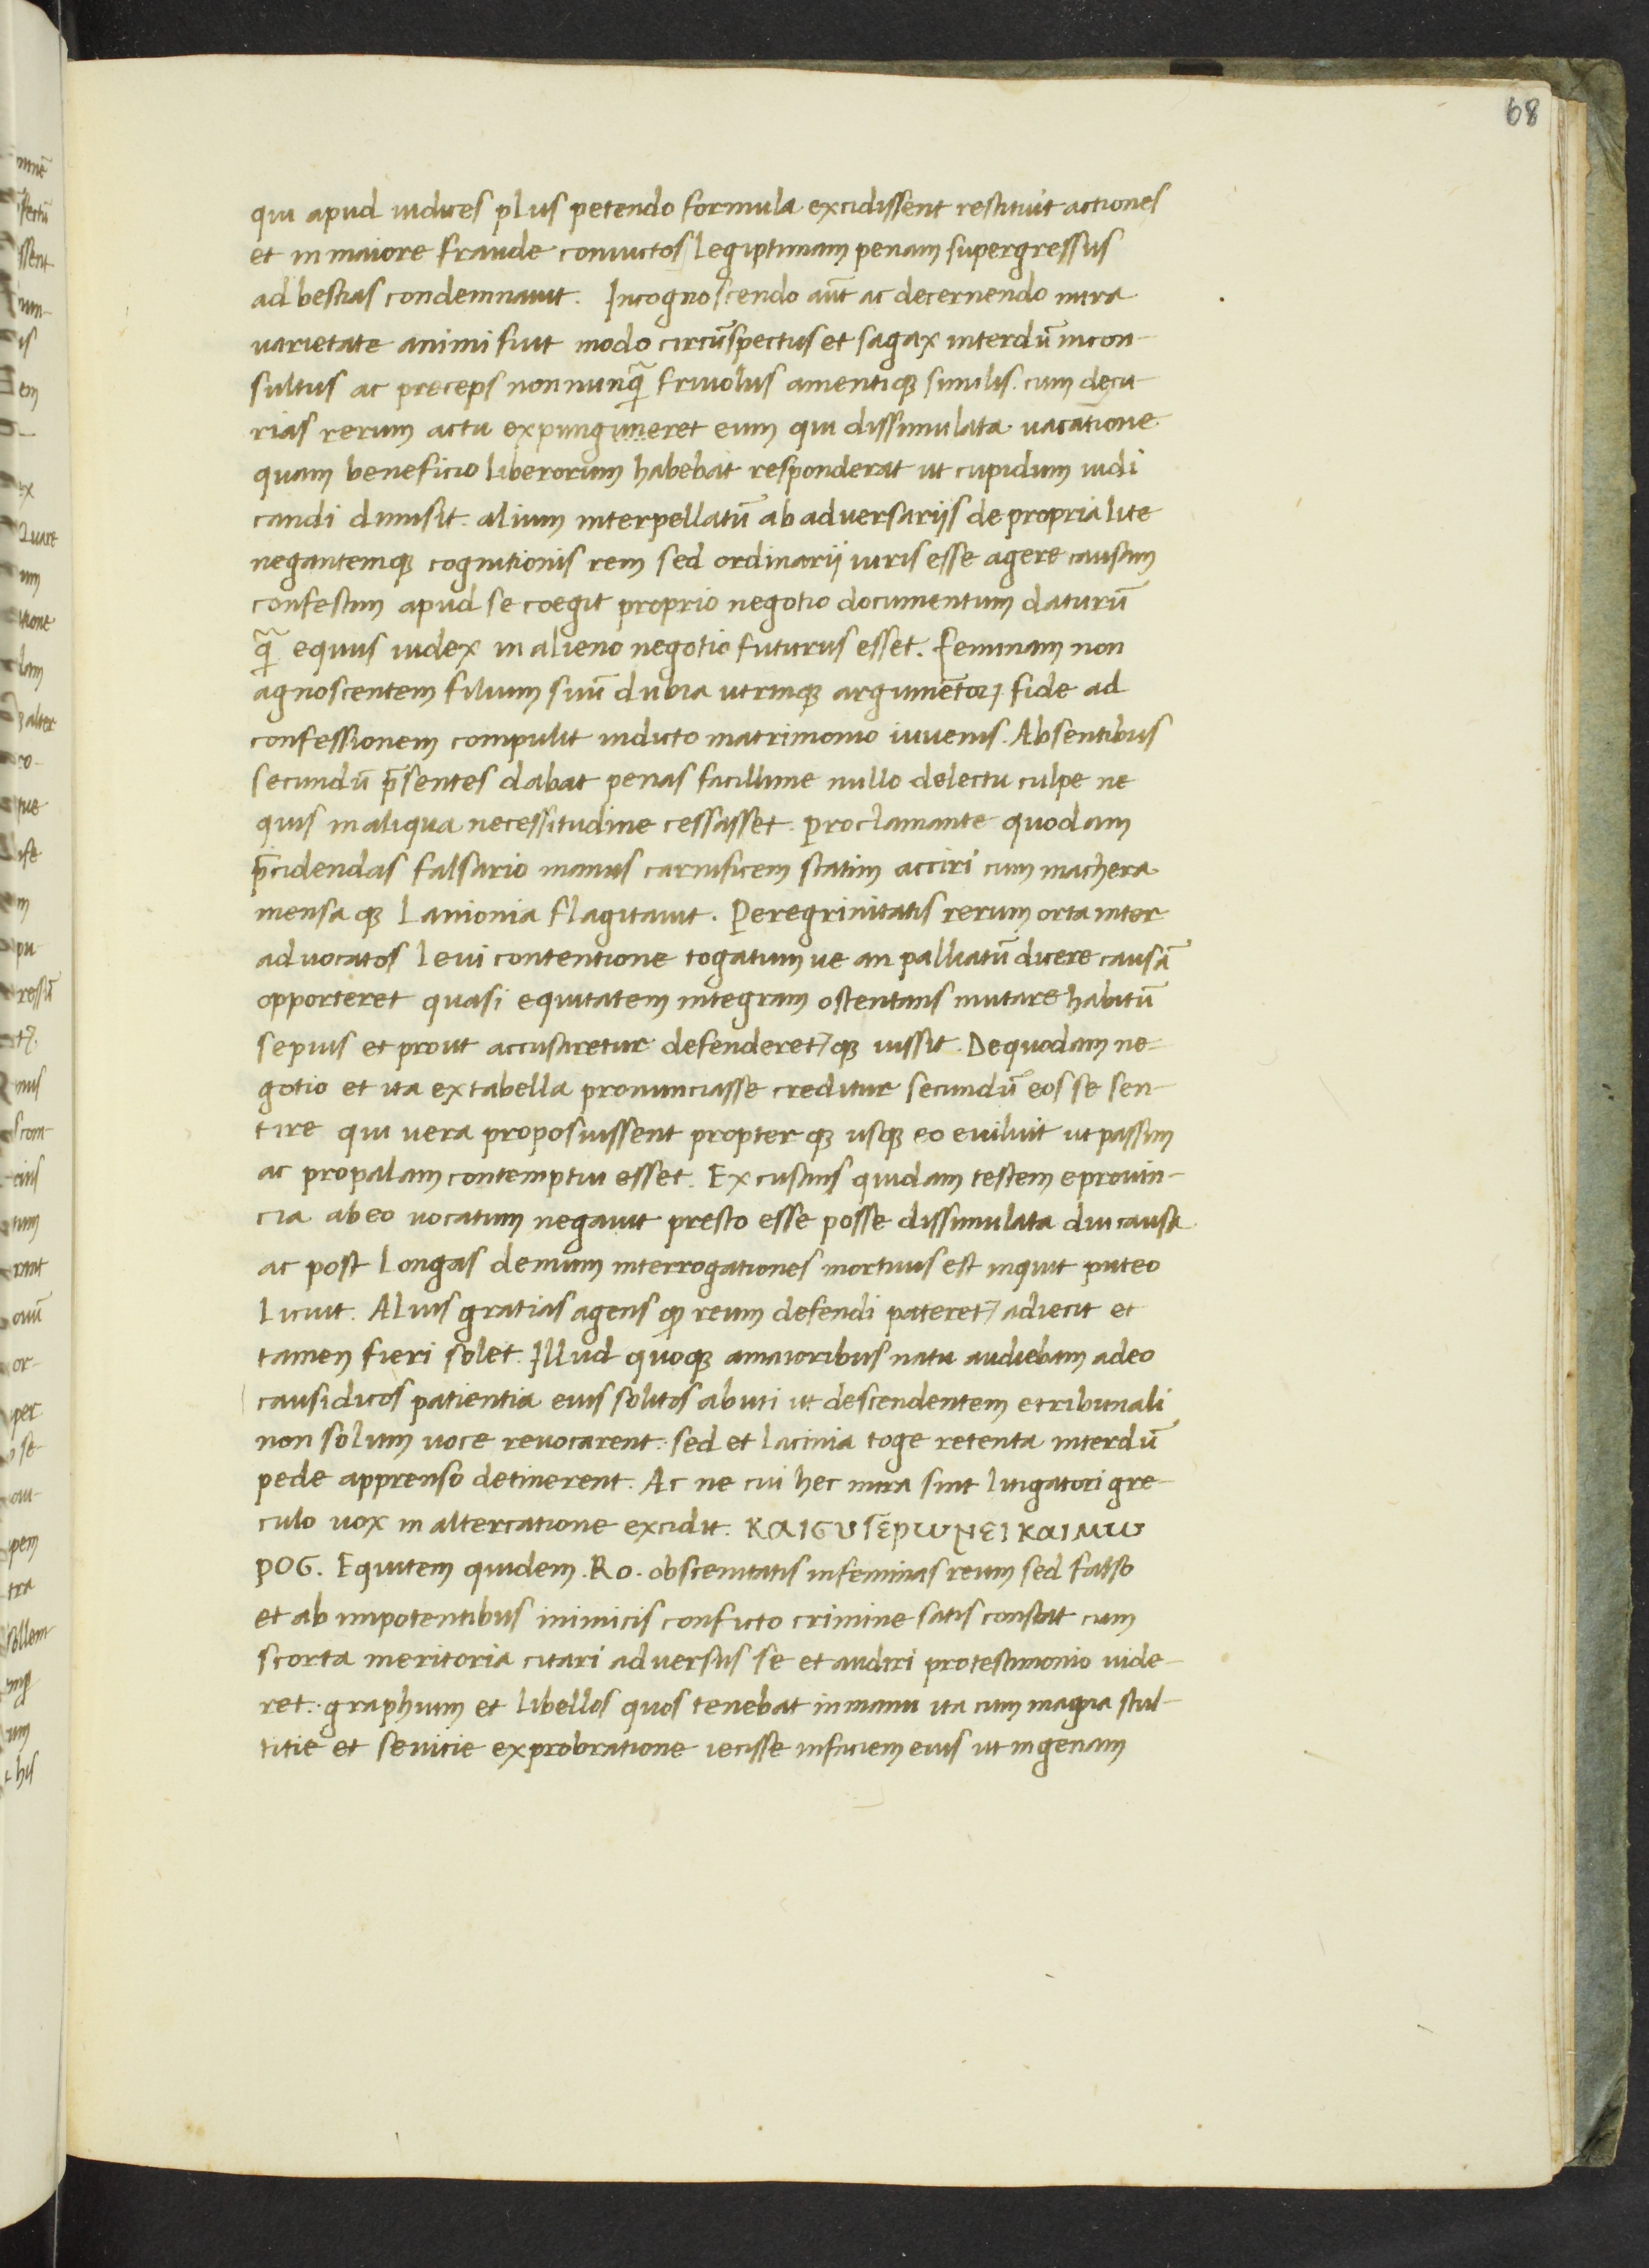 68
qui apud iudices plus petendo formula excidissent restituit actiones
et in maiore fraude conuictos legiptimam penam supergressus
ad bestias condemnauit. Incognoscendo aūt ac decernendo mira
uarietate animi fuit modo circūspectus et sagax interdū incon-
sultus ac preceps nonnunq̃ friuolus amentiqꝫ similis. cum decu-
rias rerum actu expungimeret eum qui dissimulata uacatione
quam beneficio liberorum habebat responderat ut cupidum iudi
candi dimisit. alium interpellatū ab aduersariis de propria lite
negantemqꝫ cognitionis rem sed ordinarii iuris esse agere causam
confestim apud se coegit proprio negotio documentum daturū
q̃ equus iudex in alieno negotio futurus esset. feminam non
agnoscentem filium suū dubia utrinqꝫ argumētoꝝ fide ad
confessionem compulit indicto matrimonio iuuenis. Absentibus
secundū p̄sentes dabat penas facillime nullo delectu culpe ne
quis in aliqua necessitudine cessasset. proclamante quodam
p̄cidendas falsario manus carnificem statim acciri cum machera
mensa qꝫ lanionia flagitauit. Peregrinitatis rerum orta inter
aduocatos leui contentione togatum ue an palliatū dicere causā
opporteret quasi equitatem integram ostentans mutare habitū
sepius et prout accusaretur defenderetꝛ qꝫ iussit. De quodam ne-
gotio et ita ex tabella pronunciasse creditur secundū eos se sen-
tire qui uera proposuissent propter qꝫ usqꝫ eo euiluit ut passim
ac propalam contemptui esset. Excusans quidam testem e prouin-
cia ab eo uocatum negauit presto esse posse dissimulata diu causa
ac post longas demum interrogationes mortuus est inquit puteo
licuit. Alius gratias agens qꝫ reum defendi pateretꝛ adiecit et
tamen fieri solet. Illud quoqꝫ a maioribus natu audiebam adeo
causidicos patientia eius solitos abuti ut descendentem e tribunali
non solum uoce reuocarent. sed et lacinia toge retenta interdū
pede apprenso detinerent. Ac ne cui hec mira sint litigatori gre-
culo uox in altercatione excidit. ΚΑΙ CΥ ΓΕΡΩΝ ΕΙ ΚΑΙ ΜΩ
ΡΟC. Equitem quidem .Ro. obscenitatis in feminas reum sed falso
et ab impotentibus inimicis conficto crimine satis constat cum
scorta meritoria citari aduersus se et audiri pro testimonio uide-
ret. graphium et libellos quos tenebat in manu ita cum magna stul-
titie et seuicie exprobratione iecisse in faciem eius ut in genam